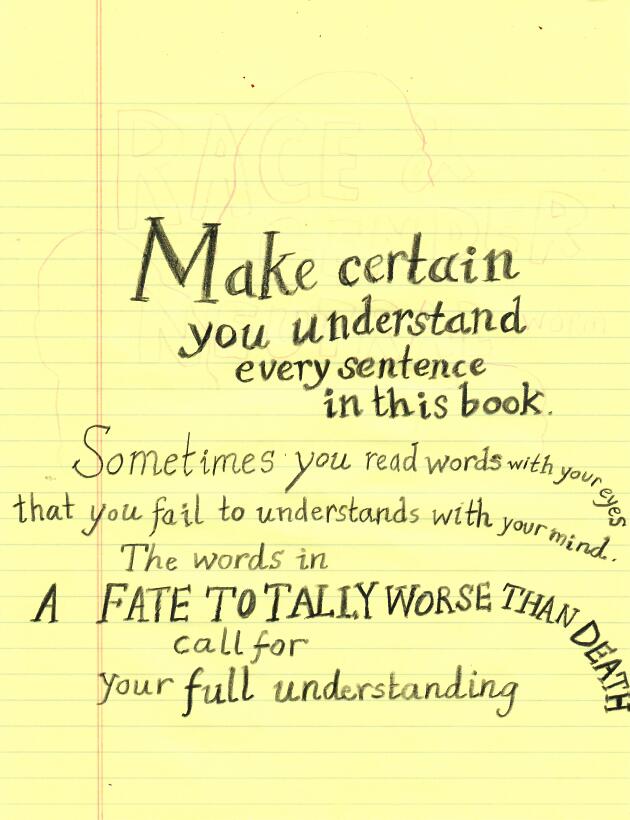 RACE &
GENDER
Make certain
you understand
every sentence
in this book.
Sometimes you read words with your eyes
that you fail to understands with your mind..
The words in
A FATE TOTALLY WORSE THAN DEATH
call for
your full understanding